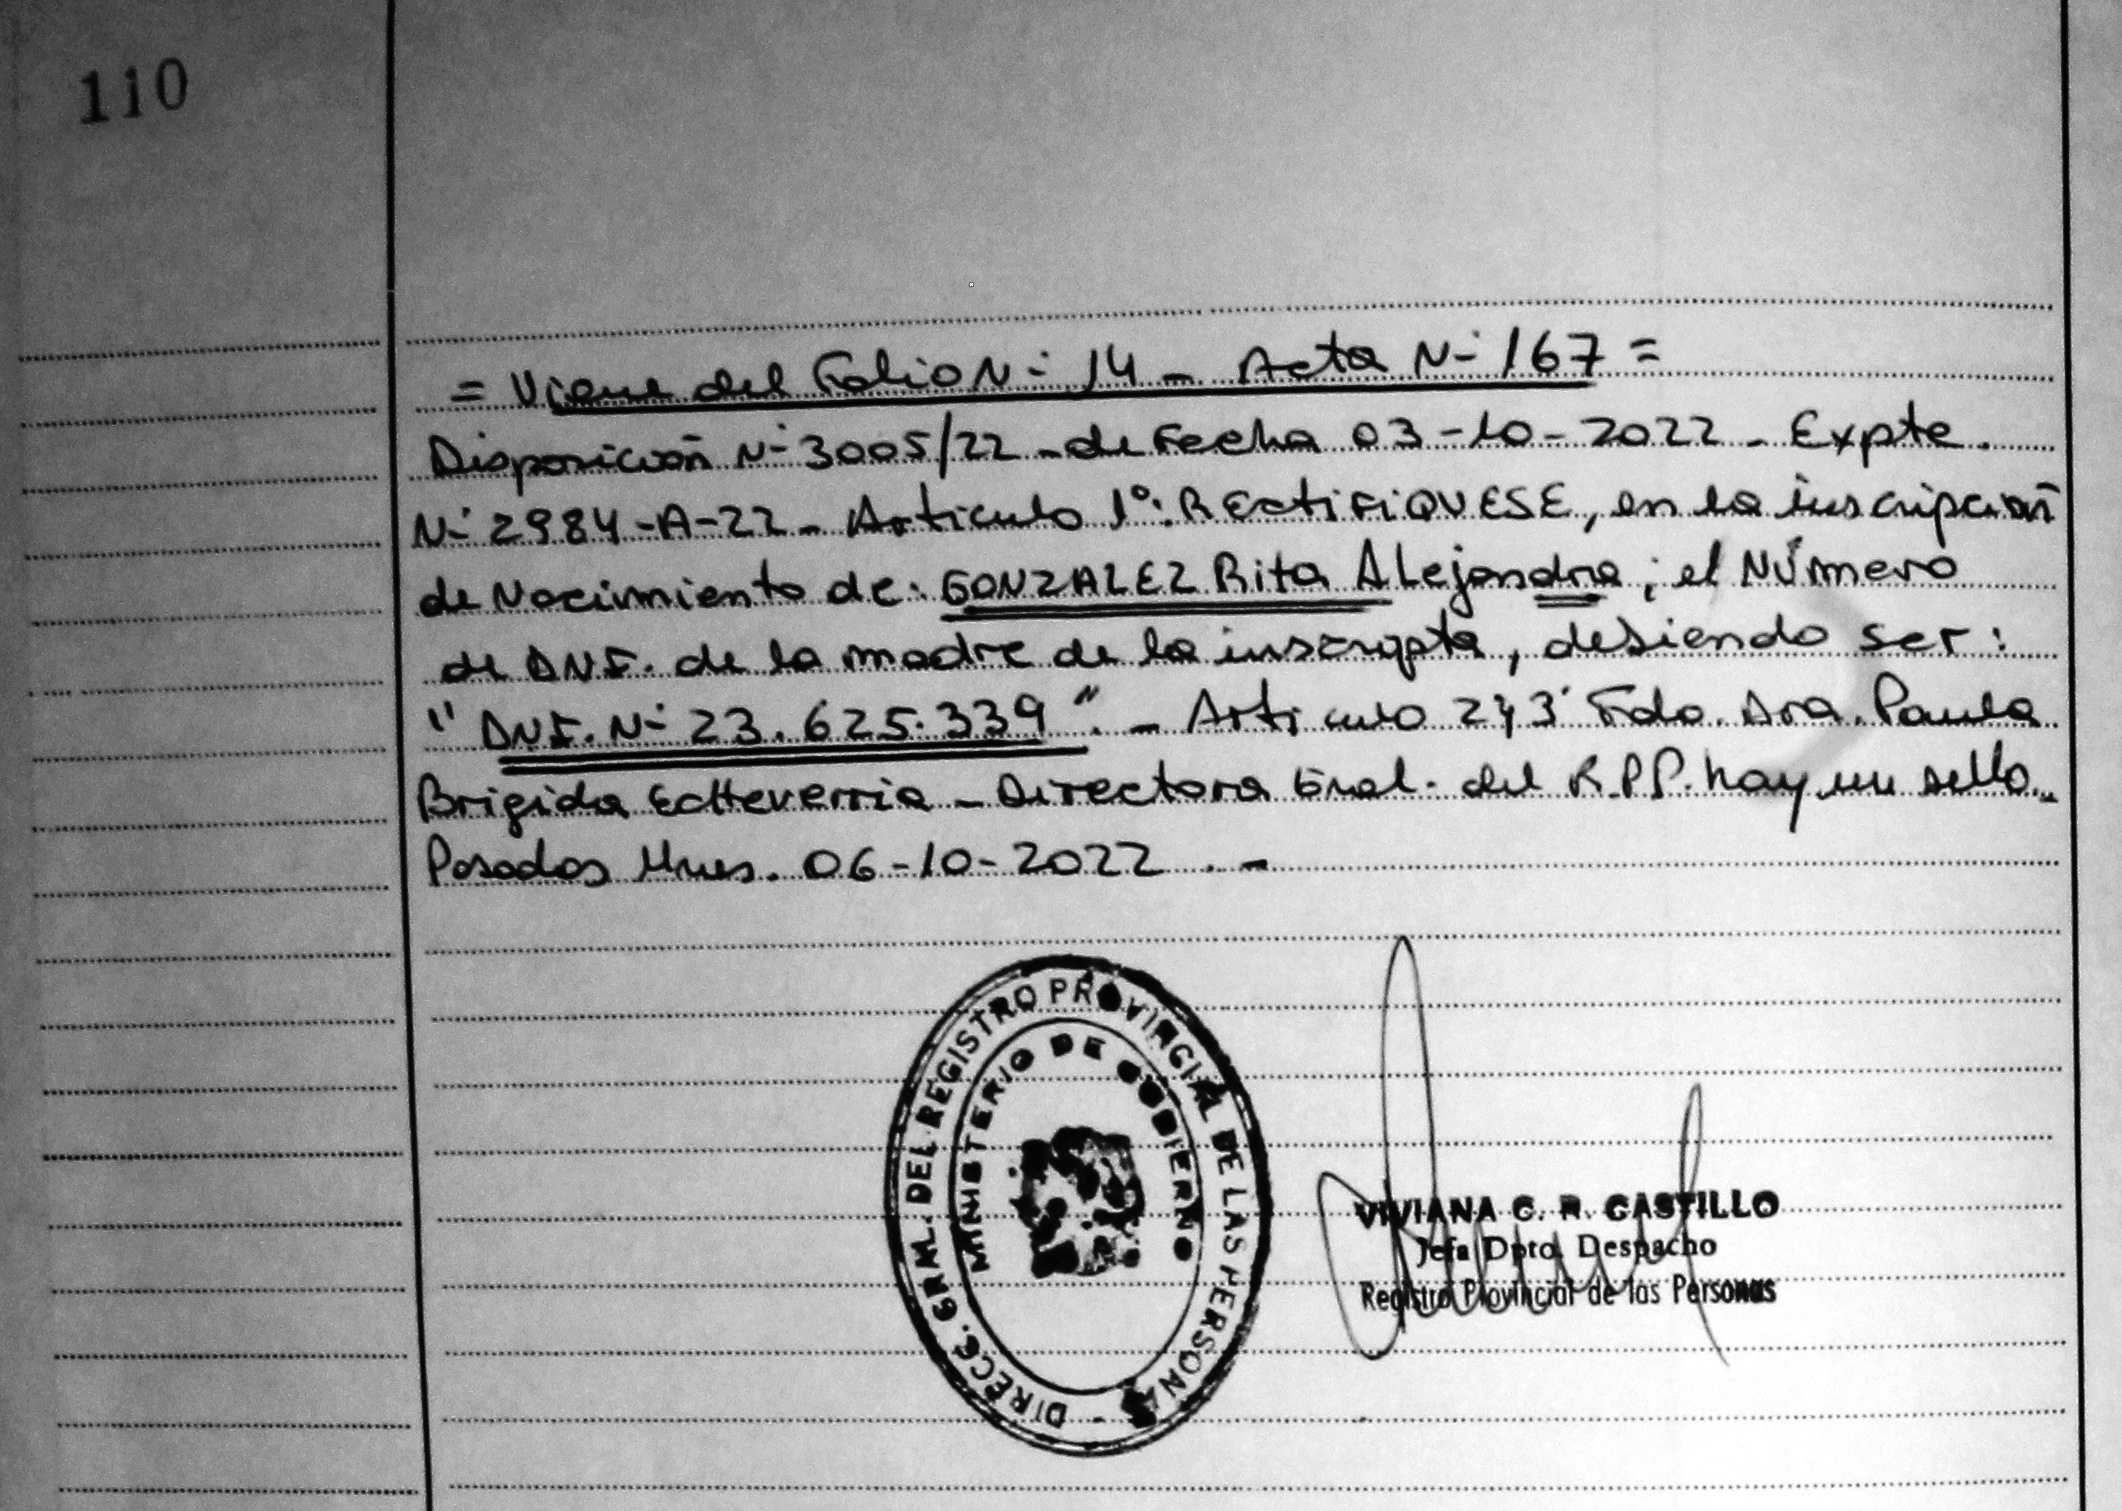 110
= Viene del Folio N- 14 - Acta N- 167 =
Disposición N- 3005/22 - de Fecha 03-10-2022 - Expte.
N- 2984-A-22 - Articulo 1°: RECtiFiQUESE, en la inscripción
de Nacimiento de: GONZALEZ Rita Alejandra; el Número
de DNI. de la madre de la inscripta, debiendo ser:
"DNI. N- 23.625.339". - Articulo 2y3 Fdo. Dra. Paula
Brigida Echeverria - Directora Gral. del R.P.P. hay un sello.
Posadas Mnes. 06-10-2022 . -
DIRECC. GRAL. DEL REGISTRO PROVINCIAL DE LAS PERSONAS -
MINISTERIO DE GOBIERNO
VIVIANA C. R. CASTILLO
Jefa Dpto. Despacho
Registro Provincial de las Personas